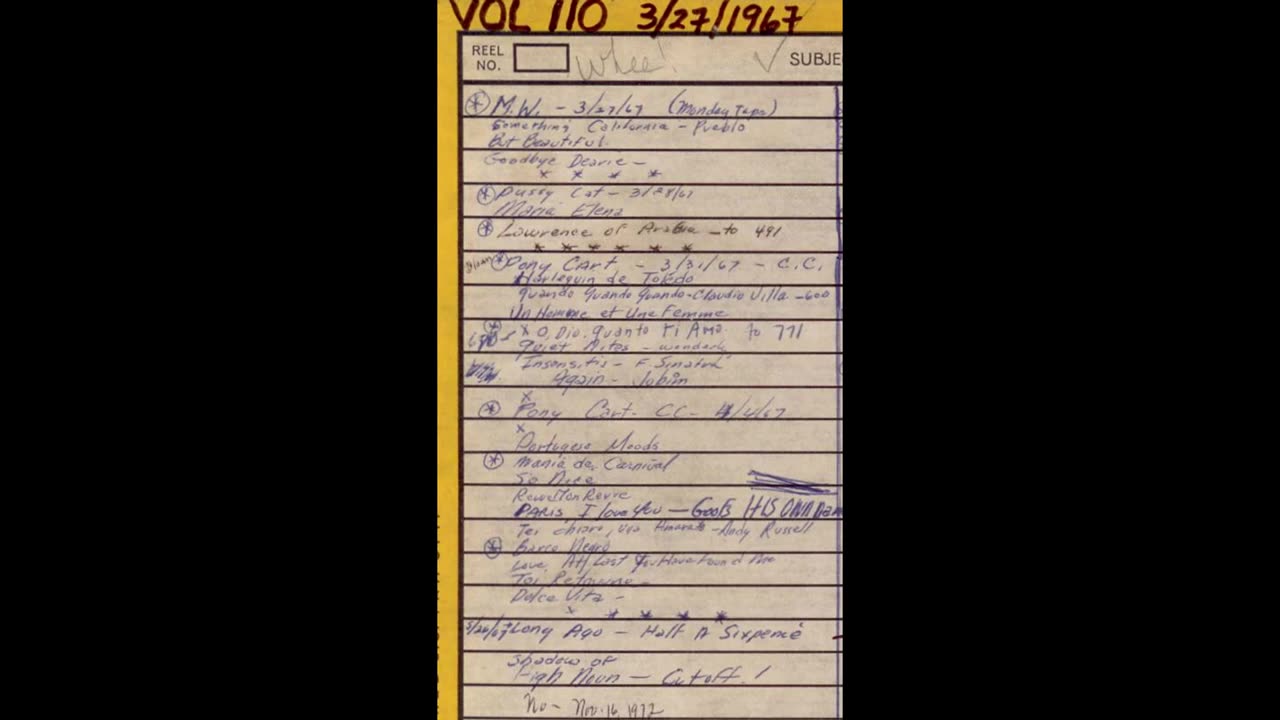 VOL 110 3/27/1967
REEL NO.
Whee!
SUBJE
M.W. - 3/27/67 (Monday Tape)
Something California - Pueblo
But Beautiful.
Goodbye Dearie -
Pussy Cat - 3/28/67
Maria Elena
Lawrence of Arabia - to 491
Pony Cart - 3/31/67 - C.C.
Harlequin de Toledo
Quando Quando Quando - Claudio Villa - 600
Un Homme et Une Femme
X O, Dio, quanto Ti Ama. to 771
Quiet Nites -
- F. Sinatra
Again - Jobim
Pony Cart - CC - 4/4/67
Portugese Moods
Mania de Carnival
So Nice
PARIS, I love you - Goofs HIS OWN
- Andy Russell
Barco Negro
Love, At Last You Have Found Me
Toi
Dolce Vita -
Long Ago - Half A Sixpence
Shadow of
High Noon - Cutoff!
No - Nov. 16, 1972